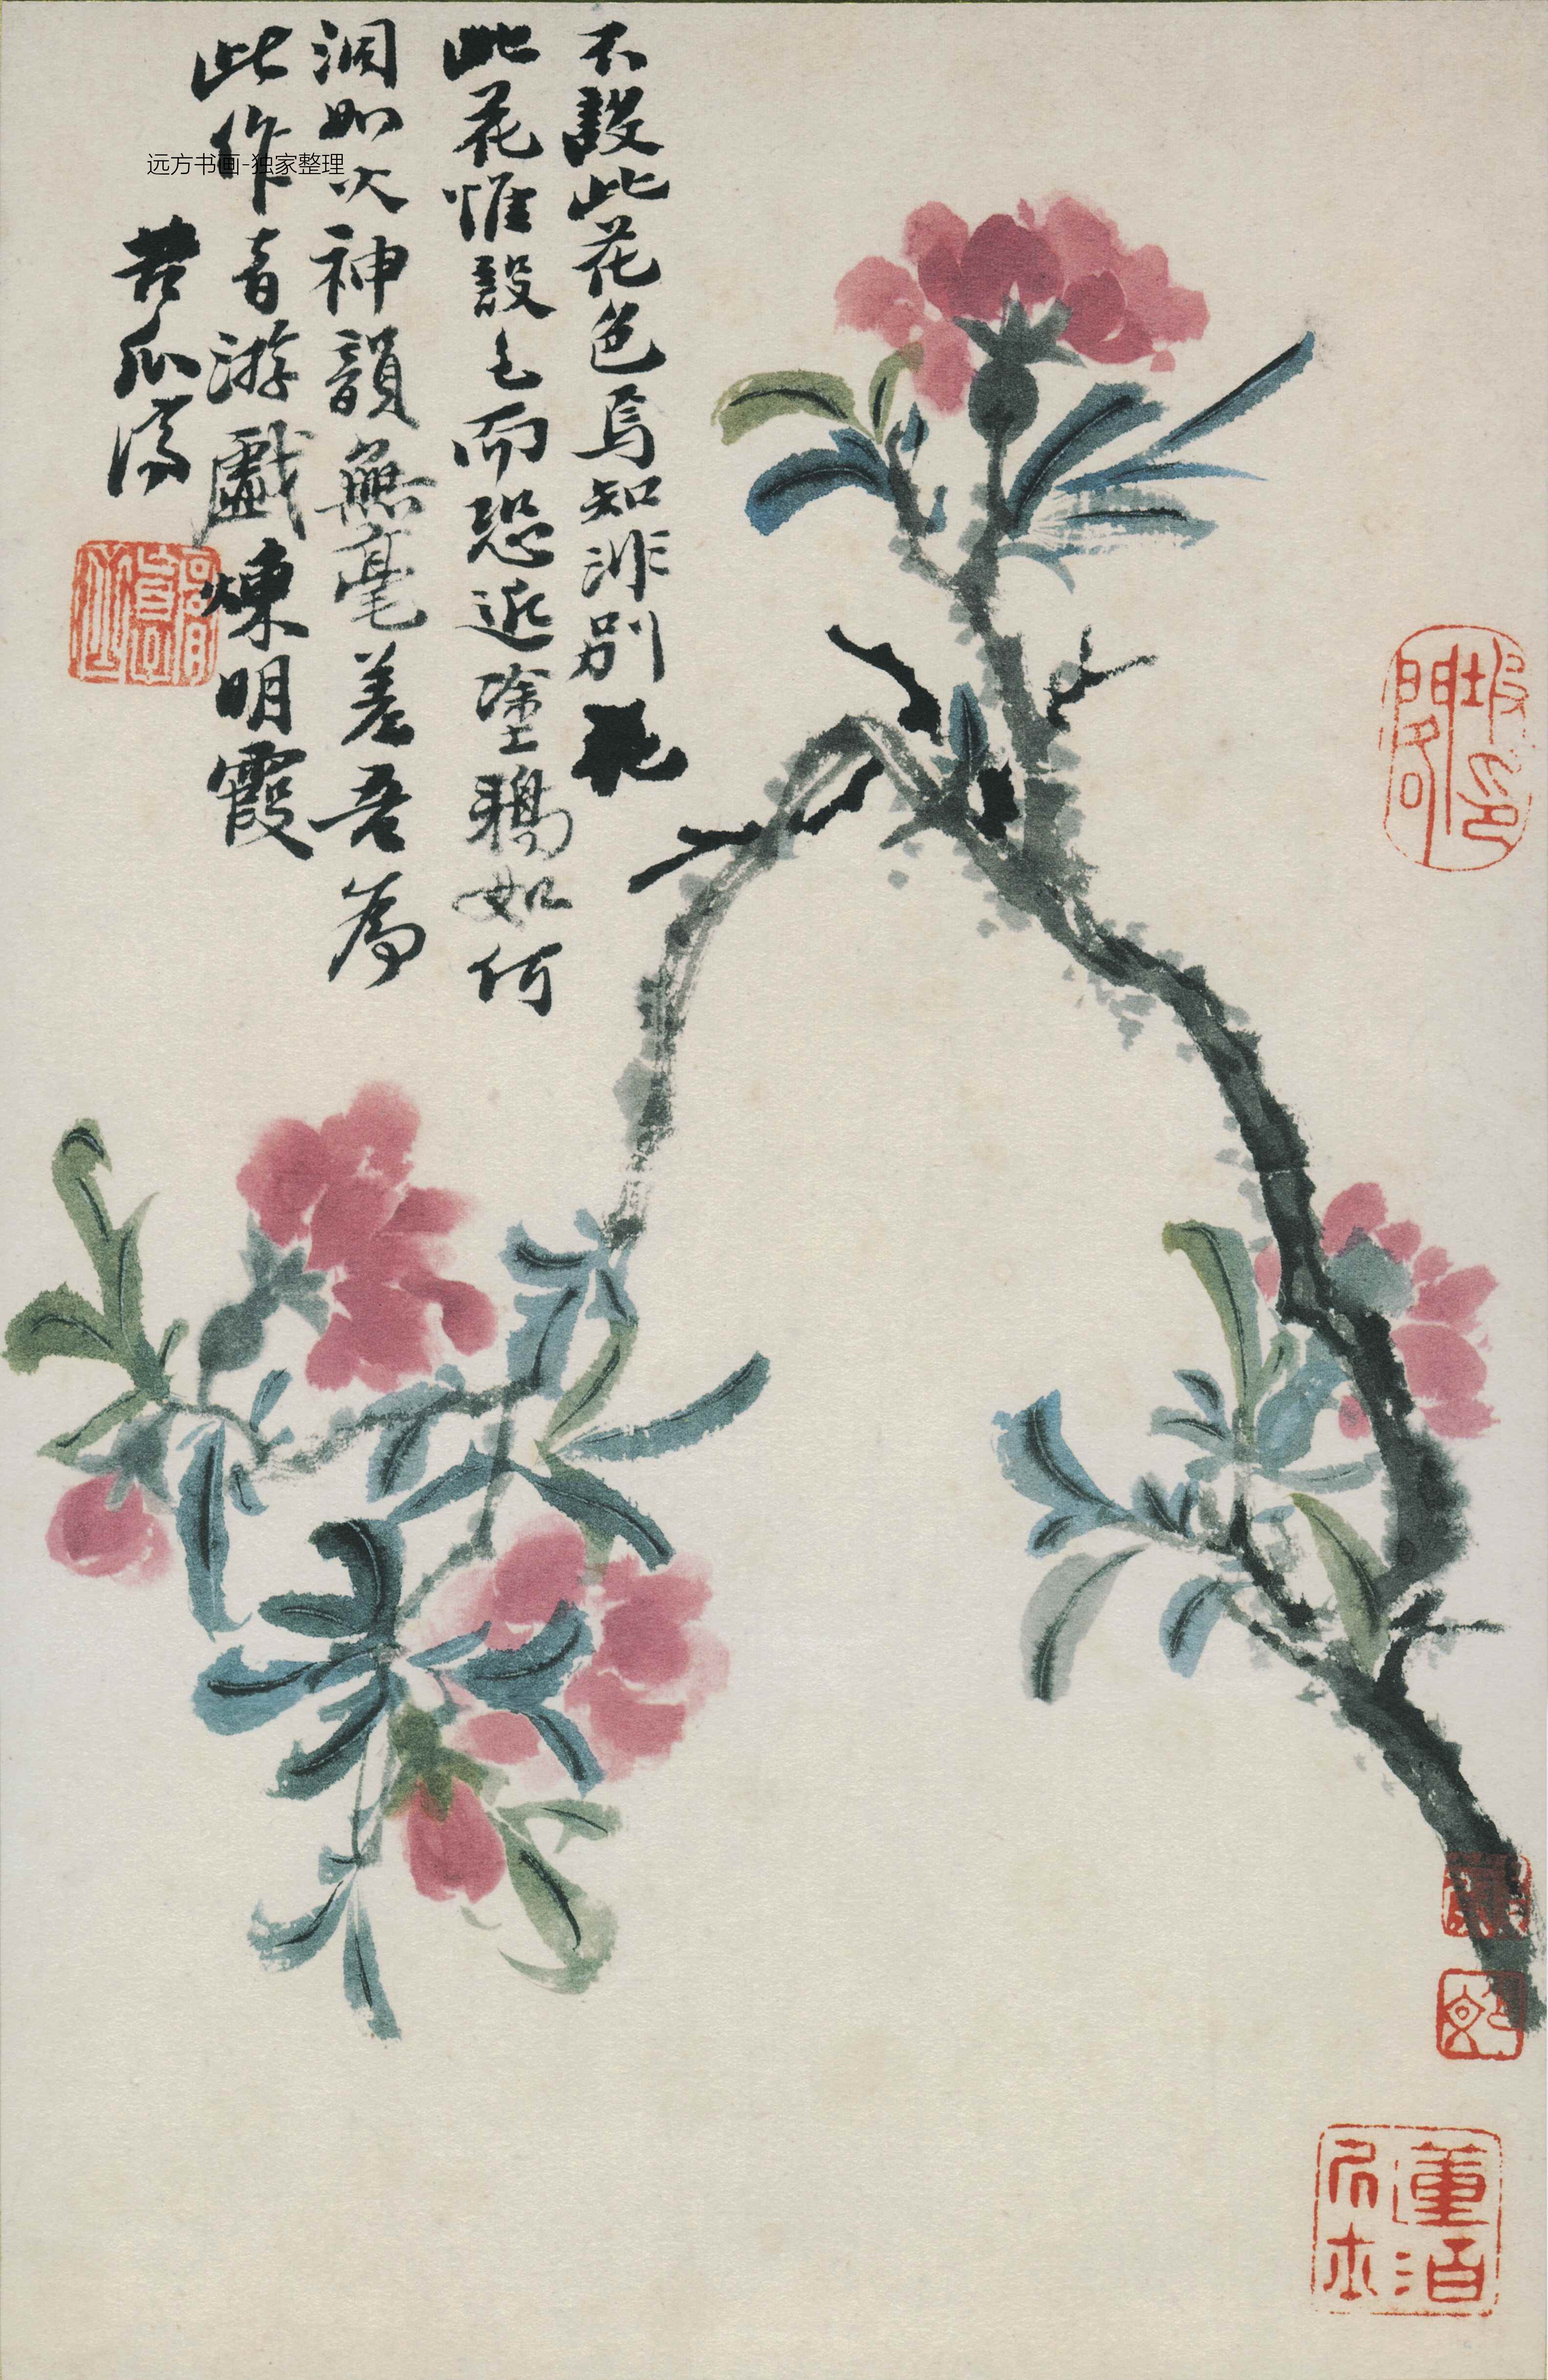 不設此花色焉知非別花
此花惟設色而恐近塗鴉如何
洞如火神韻無毫差吾為
此作者游戲煉明霞
苦瓜濟
远方书画-独家整理